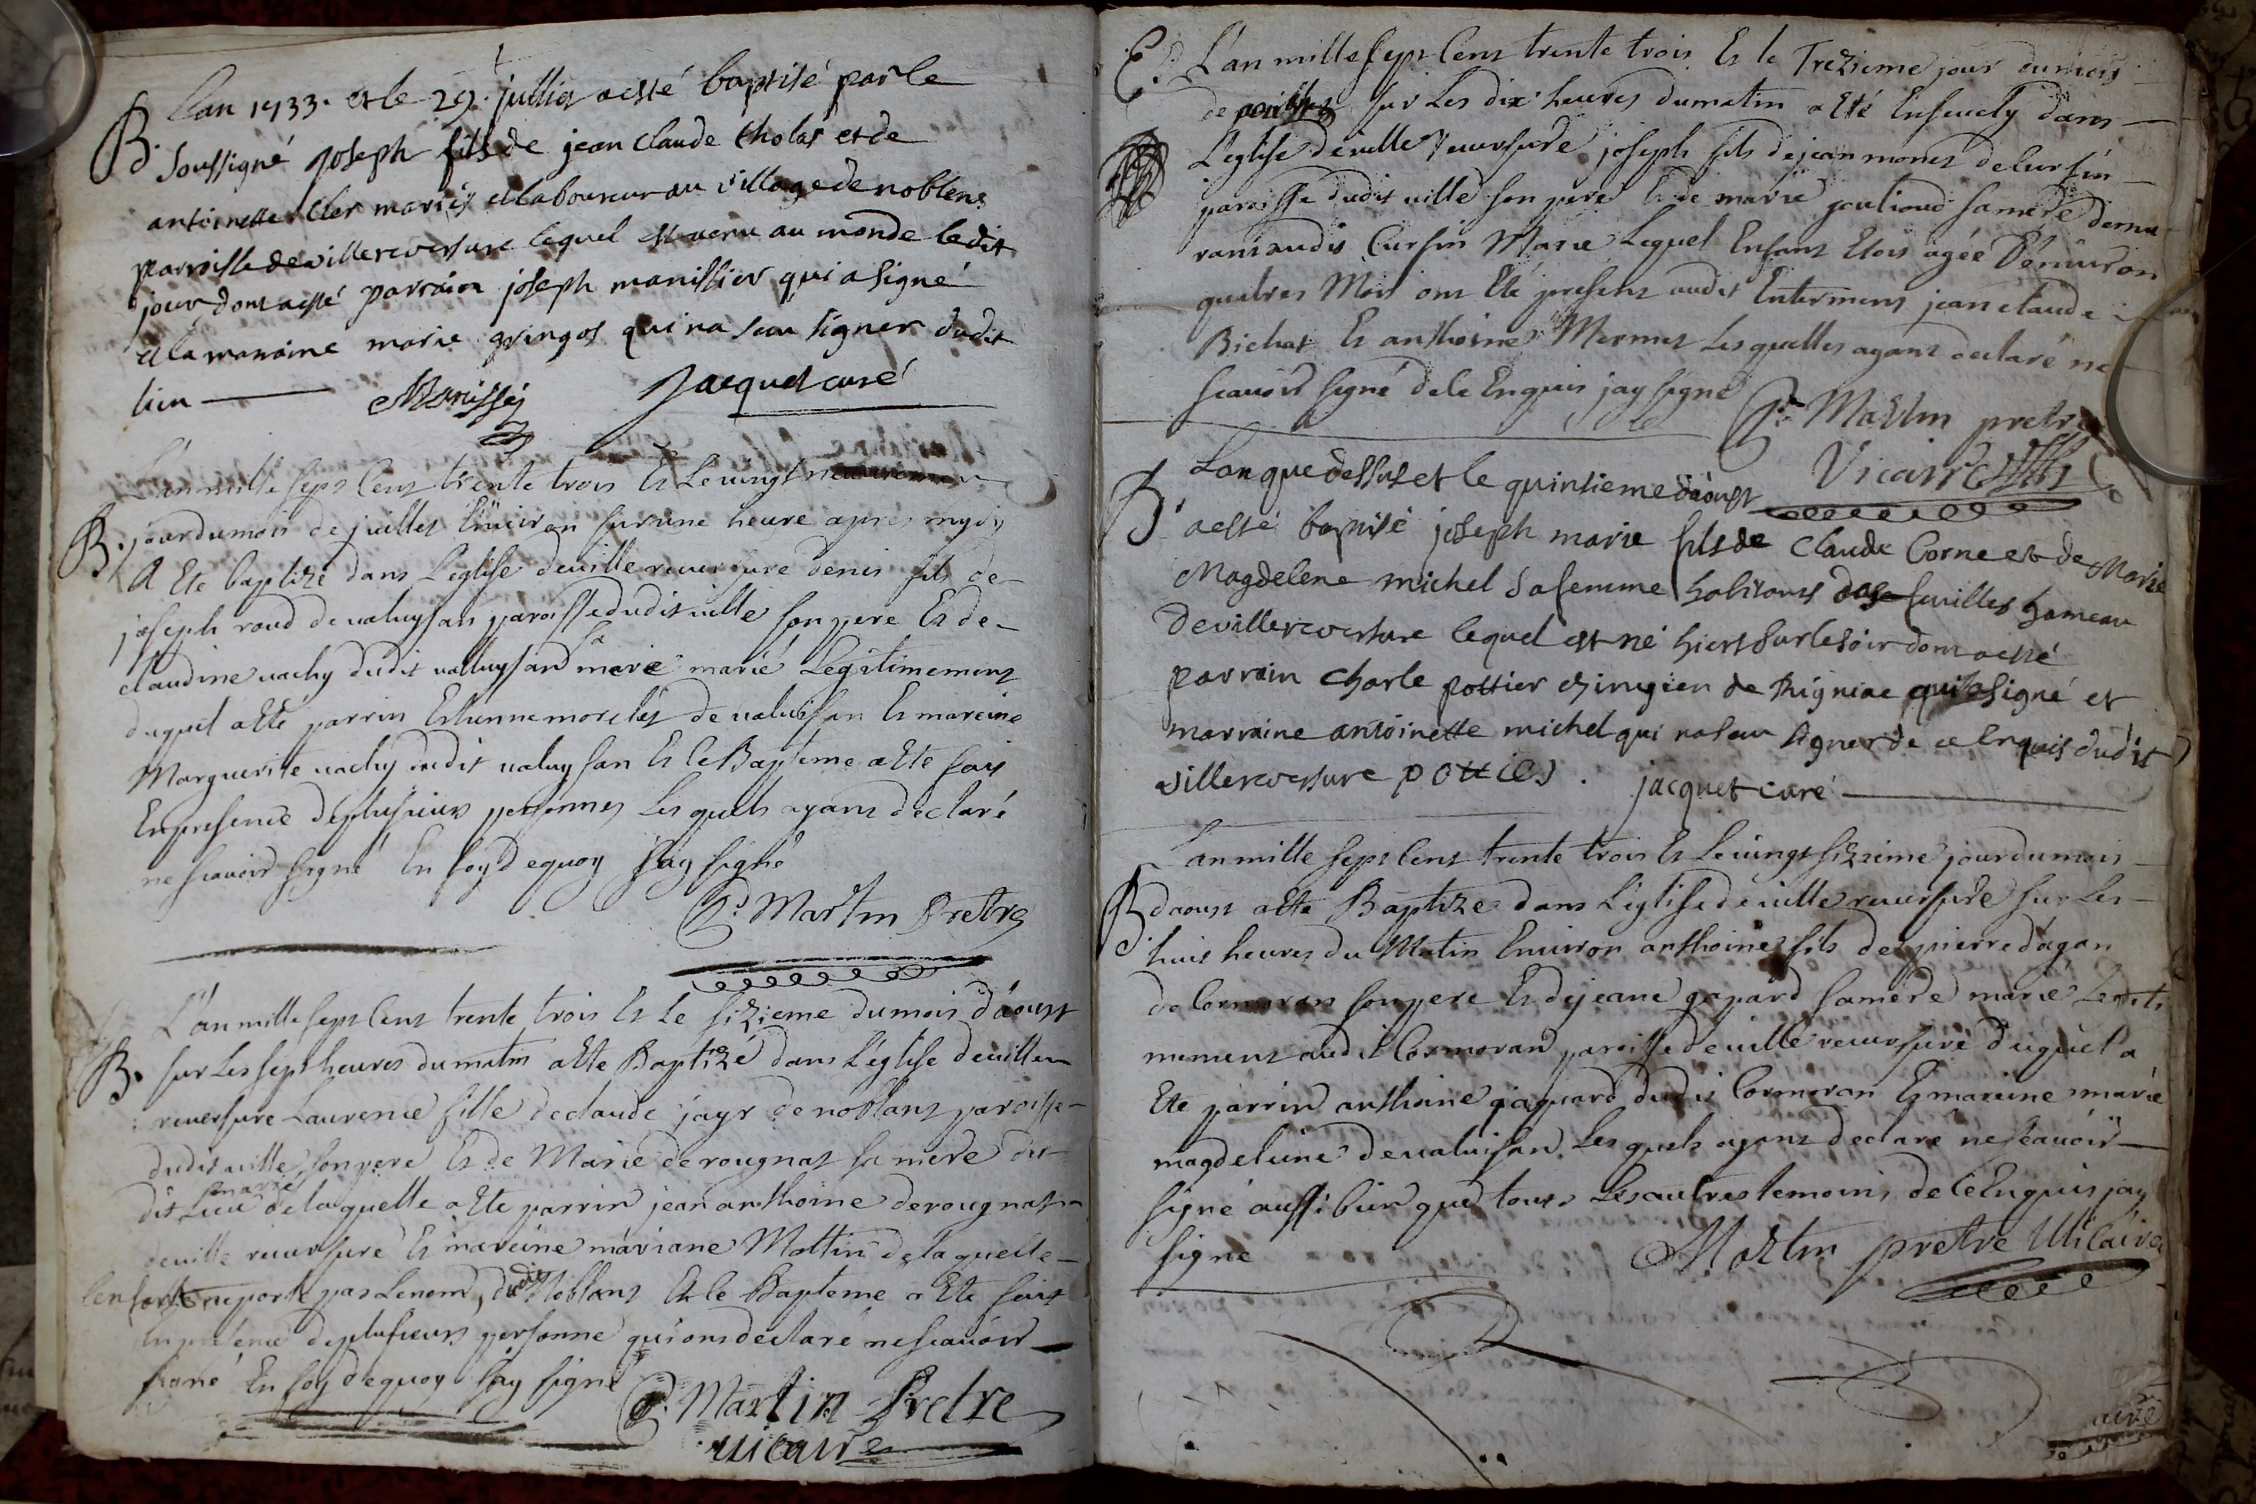 B. L'an 1733. et le 29. jullies acsté baptisé par le
soussigné Joseph fils de jean claude cholas et de
antoinette clér mariés et laboureur au village de noblens
parroisse de villereversure lequel est venu au monde ledit
jour, dont acsté parrain joseph manissier qui a signé
et la marraine marie gringos qui na seu signer dudit
lieu
Manissié Jacquet curé
L'an mille sept Cent trente trois Et Le vingt
B. jour du mois de juilles Environ sur une heure apres mydy
A Ete baptizé dans Leglise de ville reuersure denis fils de
joseph roud de ualuysan paroisse dudit uille son pere Et de
claudine uachy dudit ualuysan sa mere marié Legitimement
duquel a Ete parrin Estienne morelet de ualuisan Et mareine
Marguerite uachy dudit ualuysan Et le Bapteme a Ete fait
En presence de plusieurs personnes Lesquels ayant declaré
ne scauoir signé En foy de quoy J'ay signé
P. Martin Pretre
L'an mille sept Cent trente trois Et Le sizieme du mois d'aoust
B. sur Les sept heures du matin a Ete Baptizé dans L'eglise de uille
reuersure Laurence fille de claude jayr de noblans paroisse
dudit uille son pere Et de Marie derougnat sa mere du
dit Lieu mariés de laquelle a Ete parrin jean anthoine derougnat
de uille reuersure Et mareine mariane Mottin de laquelle
lenfant ne porte pas Le nom, dudit Noblans Et le Bapteme a Ete fait
En presence de plusieurs personne qui ont declaré ne scauoir
signé En foy de quoy j'ay signé
P. Martin Pretre
uicaire
E. L'an mille sept Cent trente trois Et le Trezieme jour du mois
de sur Les dix heures du matin a Eté Enseuely dans
L'eglise de uille reuersure joseph fils de jean monet de Cursin
paroisse dudit uille son pere Et de marie poulioud sa mere demeu
rant audit Cursin Marie Lequel Enfant Etoit agée D'enuiron
quatres Mois ont Eté present audit Enterment jean claude
Bichat Et anthoine Mermet Lesquelles ayant declaré ne
scauoir signé de Ce Enquis jay signé
P. Martin pretre
Vicaire
B. Lan que dessus et le quinsieme daoust
acsté baptisé joseph marie fils de claude Corne et de Marie
Magdelene michel sa femme habitants feuilles hameau
de villereversure lequel est né hiers sur le soir dont acsté
parrain charle pottier chirugien de Rigniac qui a signé et
marraine antoinette michel qui na seu signer de ce enquis dudit
villereversure pottier. jacquet curé
L'an mille sept Cent trente trois Et Le uingt sizieme jour du mois
B. daoust a Ete Baptize dans L'eglise de uille reuersure sur Les
huit heures du Matin Enuiron anthoine fils de pierre dagan
de Cormoran son pere Et de jeane gapard sa mere marié Legiti
mement audit Cormoran paroisse de uille reuersure duquel a
Ete parrin anthoine gapard dudit Cormoran Et mareine marie
magdeleine de ualuisan Lesquels ayant declaré ne scauoir
signé aussi bien que tous Les autres temoins de Ce Enquis jay
signé Martin pretre Uicaire